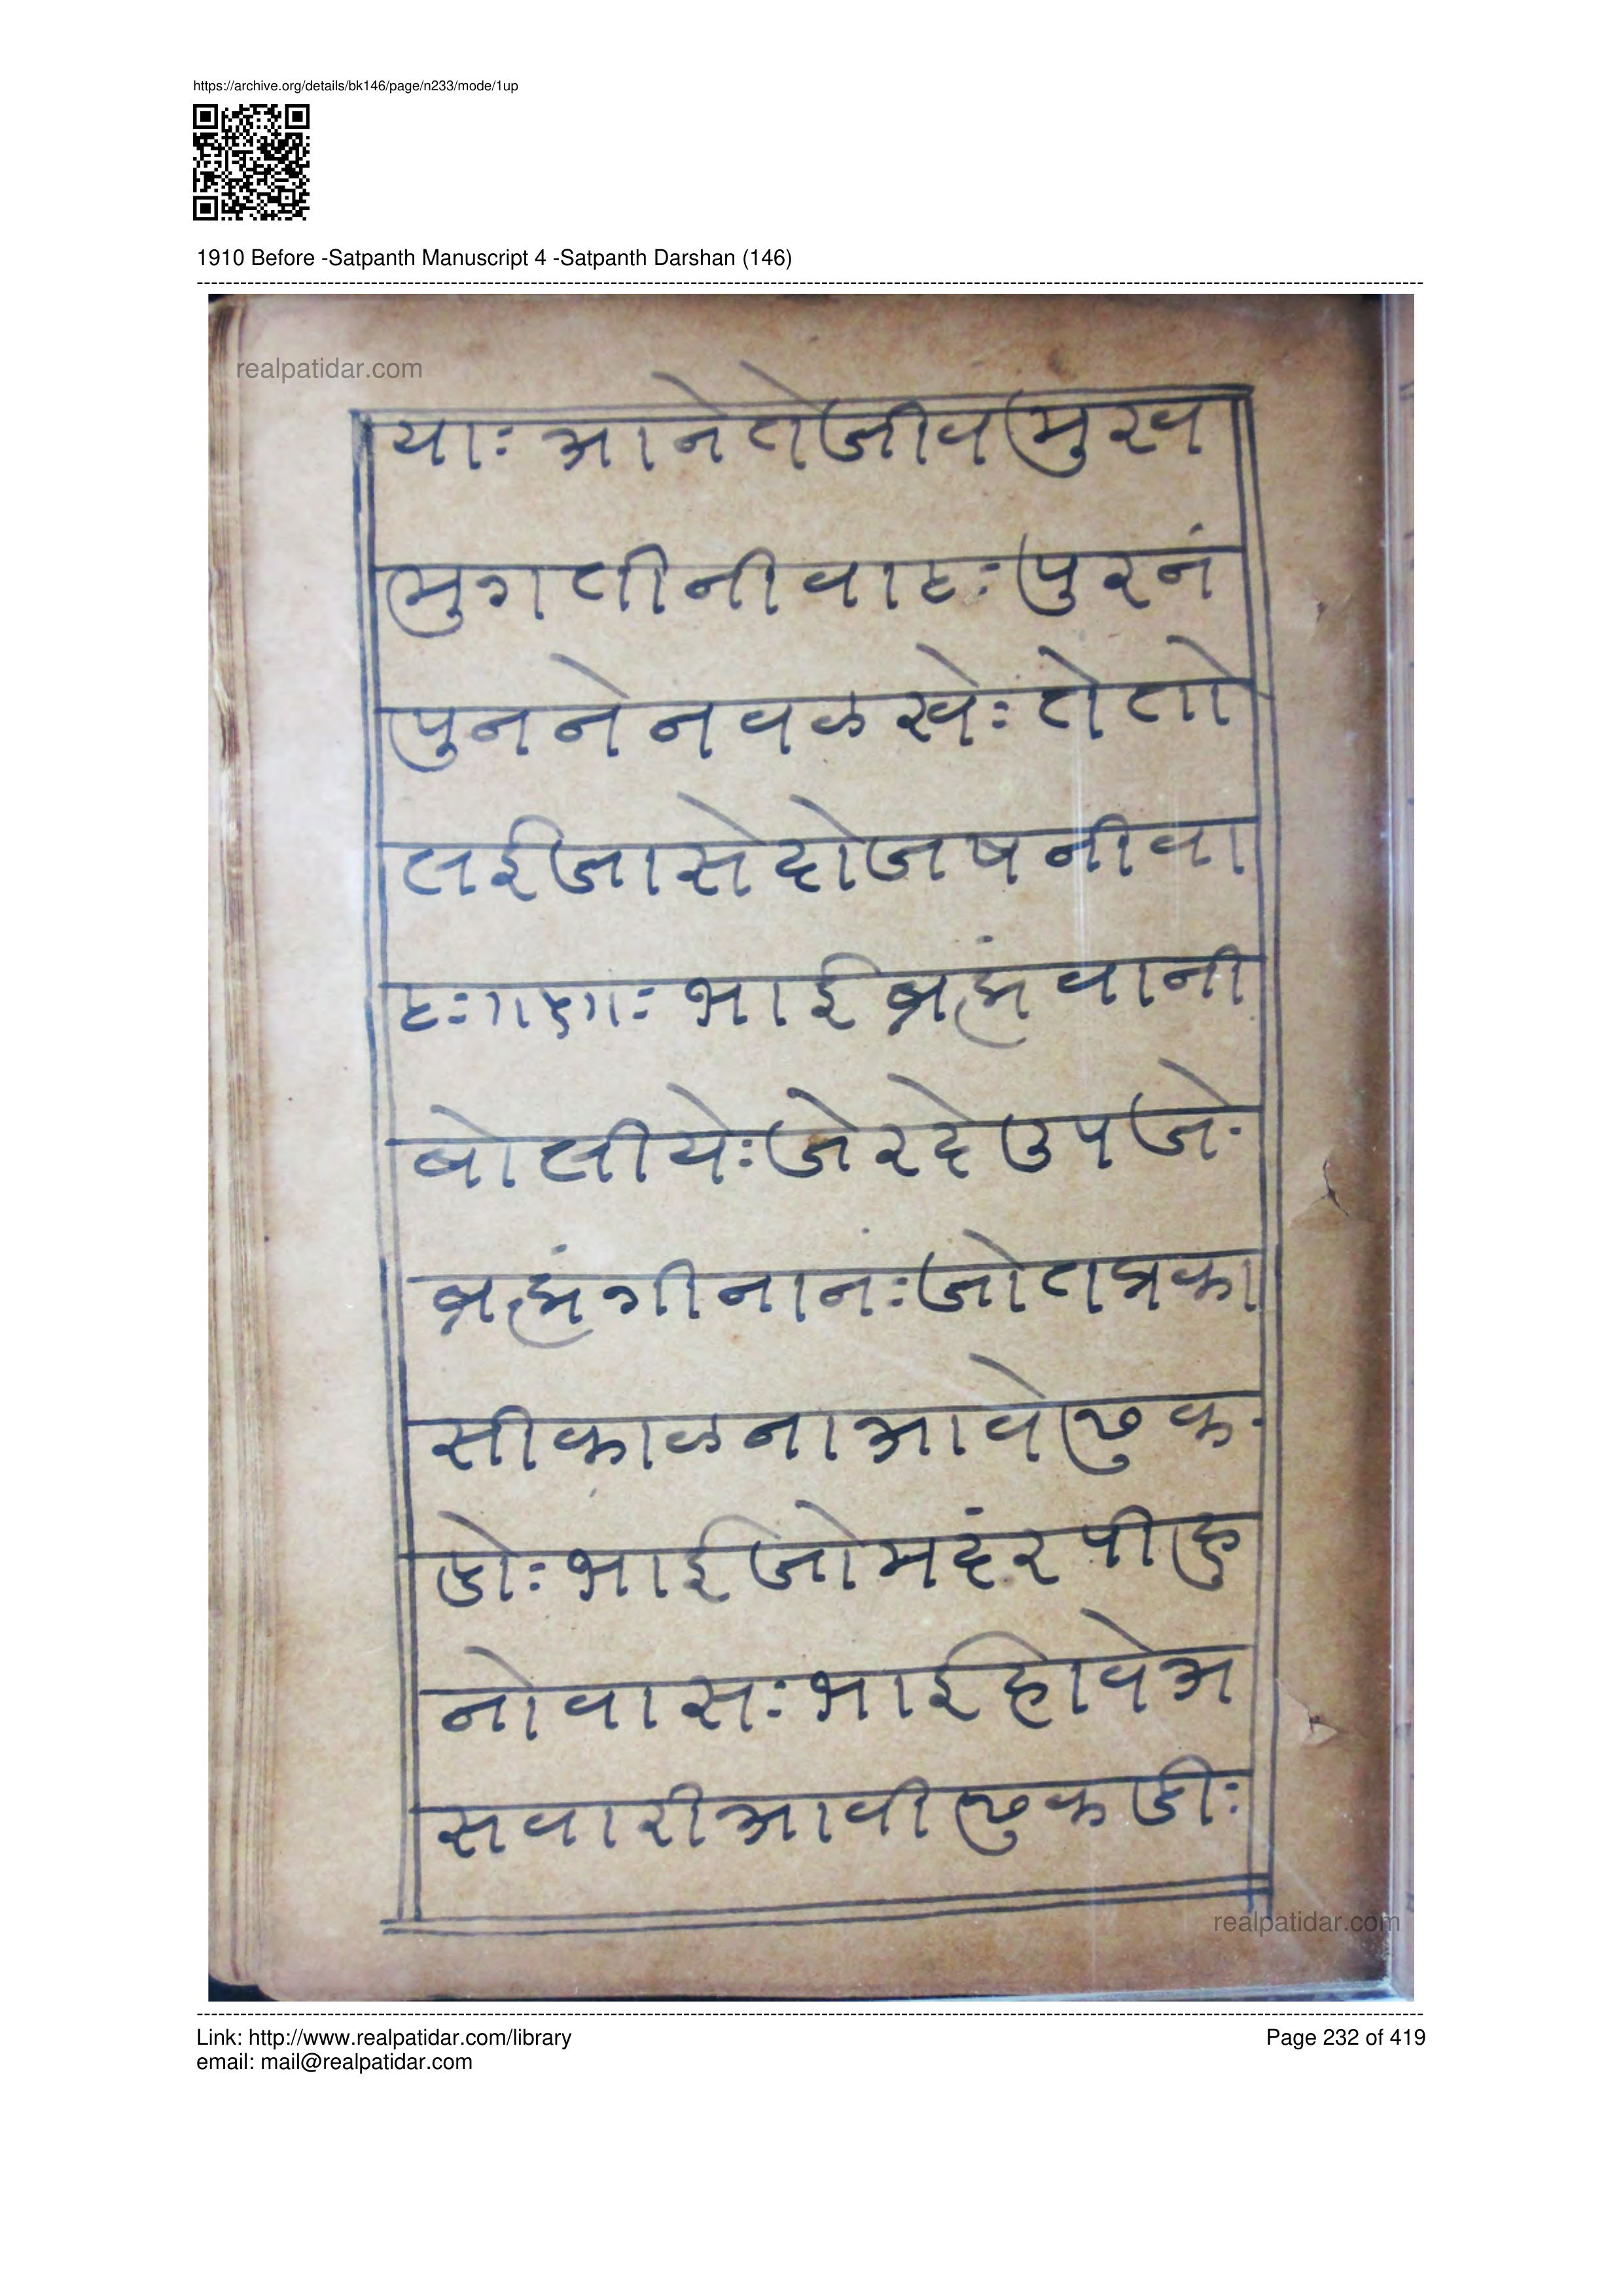 https://archive.org/details/bk146/page/n233/mode/1up
1910 Before -Satpanth Manuscript 4 -Satpanth Darshan (146)
realpatidar.com
याः आनेतेजीवमुख
मुगतीनीवाटः पुरनं
पुनने नवळखेः तेतो
लईजासेदोजषनीवा
टः॥ भाईब्रह्मंवानी
बोलीयेः जेरदेउपजे
ब्रह्मंगीनानंः जोतप्रका
सीकाळनाआवेढुक
डोः भाईजोमदंरपीरु
नोवासः भाईहोवेअ
सवारीआवीढुकडीः
realpatidar.com
Link: http://www.realpatidar.com/library
email: mail@realpatidar.com
Page 232 of 419